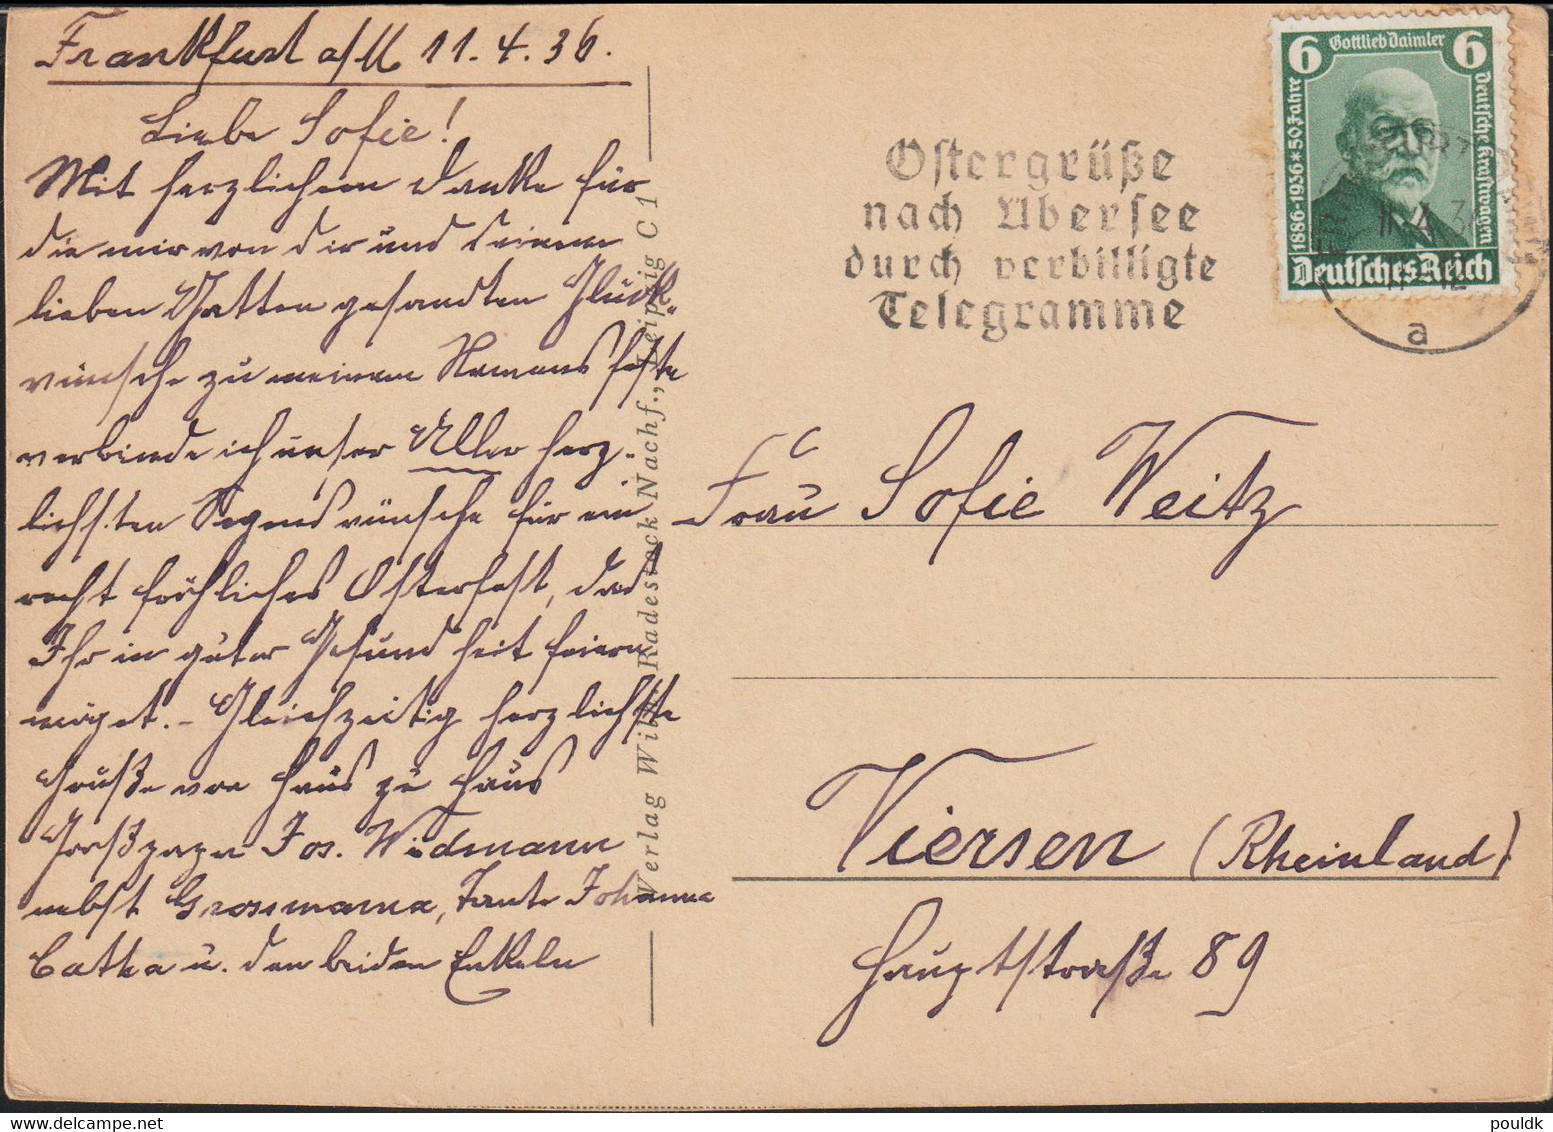 Frankfurt a/M 11.4.36.
Liebe Sofie!
Mit herzlichem Danke für
die mir von dir und deinem
lieben Gatten gesandten Glück-
wünsche zu meinem Namensfeste
verbinde ich unser Aller herz-
lichsten Segenswünsche für ein
recht fröhliches Osterfest, das
Ihr in guter Gesundheit feiern
möget. – Gleichzeitig herzlichste
Grüße von Haus zu Haus
Jos. Widmann
nebst Grossmama, Tante Johanna
Catha u. den beiden Enkeln
Verlag Wilh. Radestock Nachf., Leipzig C 1
Ostergrüße
nach Übersee
durch verbilligte
Telegramme
6 Gottlieb Daimler 6
1886-1936 * 50 Jahre
Deutsche Kraftwagen
Deutsches Reich
11.4.36
11-12
a
Frau Sofie Weitz
Viersen (Rheinland)
Hauptstraße 89
pouldk